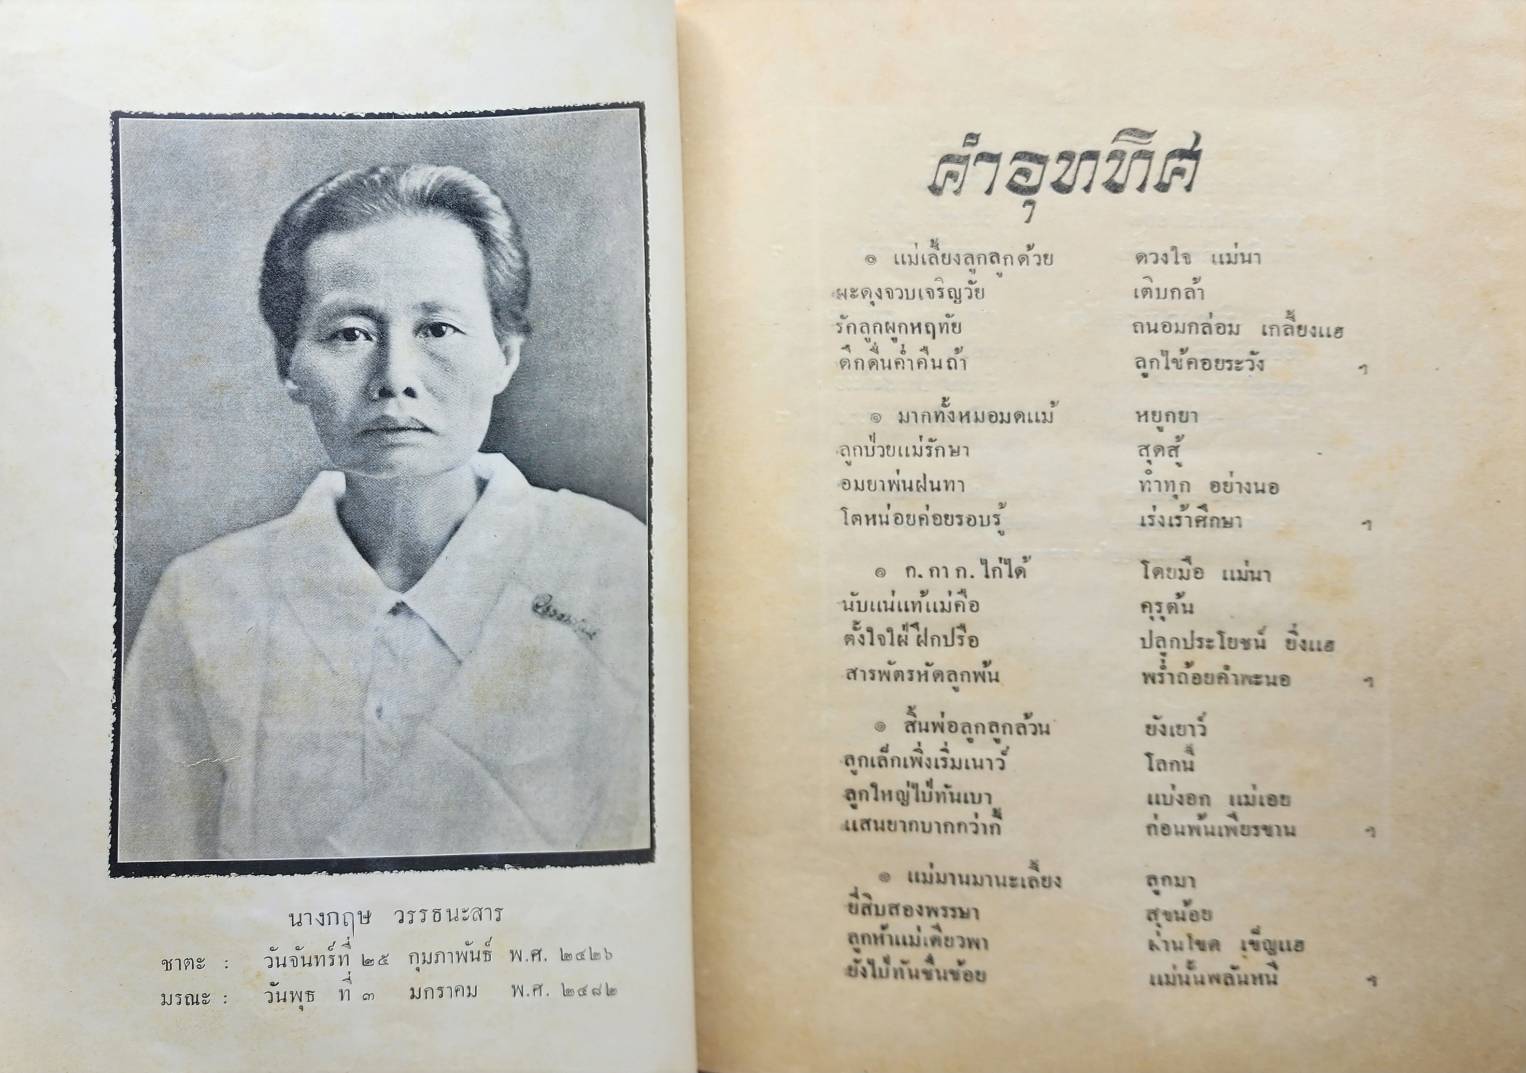 นางกฤษ วรรธนะสาร
ชาตะ : วันจันทร์ที่ ๒๕ กุมภาพันธ์ พ.ศ. ๒๔๒๖
มรณะ : วันพุธ ที่ ๓ มกราคม พ.ศ. ๒๔๘๒
คำอุททิศ
๑ แม่เลี้ยงลูกลูกด้วย ดวงใจ แม่นา
ผะดุงจวบเจริญวัย เติบกล้า
รักลูกผูกหฤทัย ถนอมกล่อม เกลี้ยงแฮ
ดึกดื่นค่ำคืนถ้า ลูกไข้คอยระวัง ฯ
๑ มากทั้งหมอมดแม้ หยูกยา
ลูกป่วยแม่รักษา สุดสู้
อมยาพ่นฝนทา ทำทุก อย่างนอ
โตหน่อยค่อยรอบรู้ เร่งเร้าศึกษา ฯ
๑ ก. กา ก. ไก่ได้ โดยมือ แม่นา
นับแน่แท้แม่คือ คุรุต้น
ตั้งใจใฝ่ฝึกปรือ ปลูกประโยชน์ ยิ่งแฮ
สารพัตรหัดลูกพ้น พร่ำถ้อยคำพะนอ ฯ
๑ สิ้นพ่อลูกลูกล้วน ยังเยาว์
ลูกเล็กเพิ่งเริ่มเนาว์ โลกนี้
ลูกใหญ่ไป่ทันเบา แบ่งอก แม่เอย
แสนยากบากกว่ากี้ ก่อนพ้นเพียรขาน ฯ
๑ แม่มานมานะเลี้ยง ลูกมา
ยี่สิบสองพรรษา สุขน้อย
ลูกห้าแม่เดียวพา ผ่านโขด เข็ญแฮ
ยังไป่ทันชื่นช้อย แม่นั้นพลันหนี ฯ